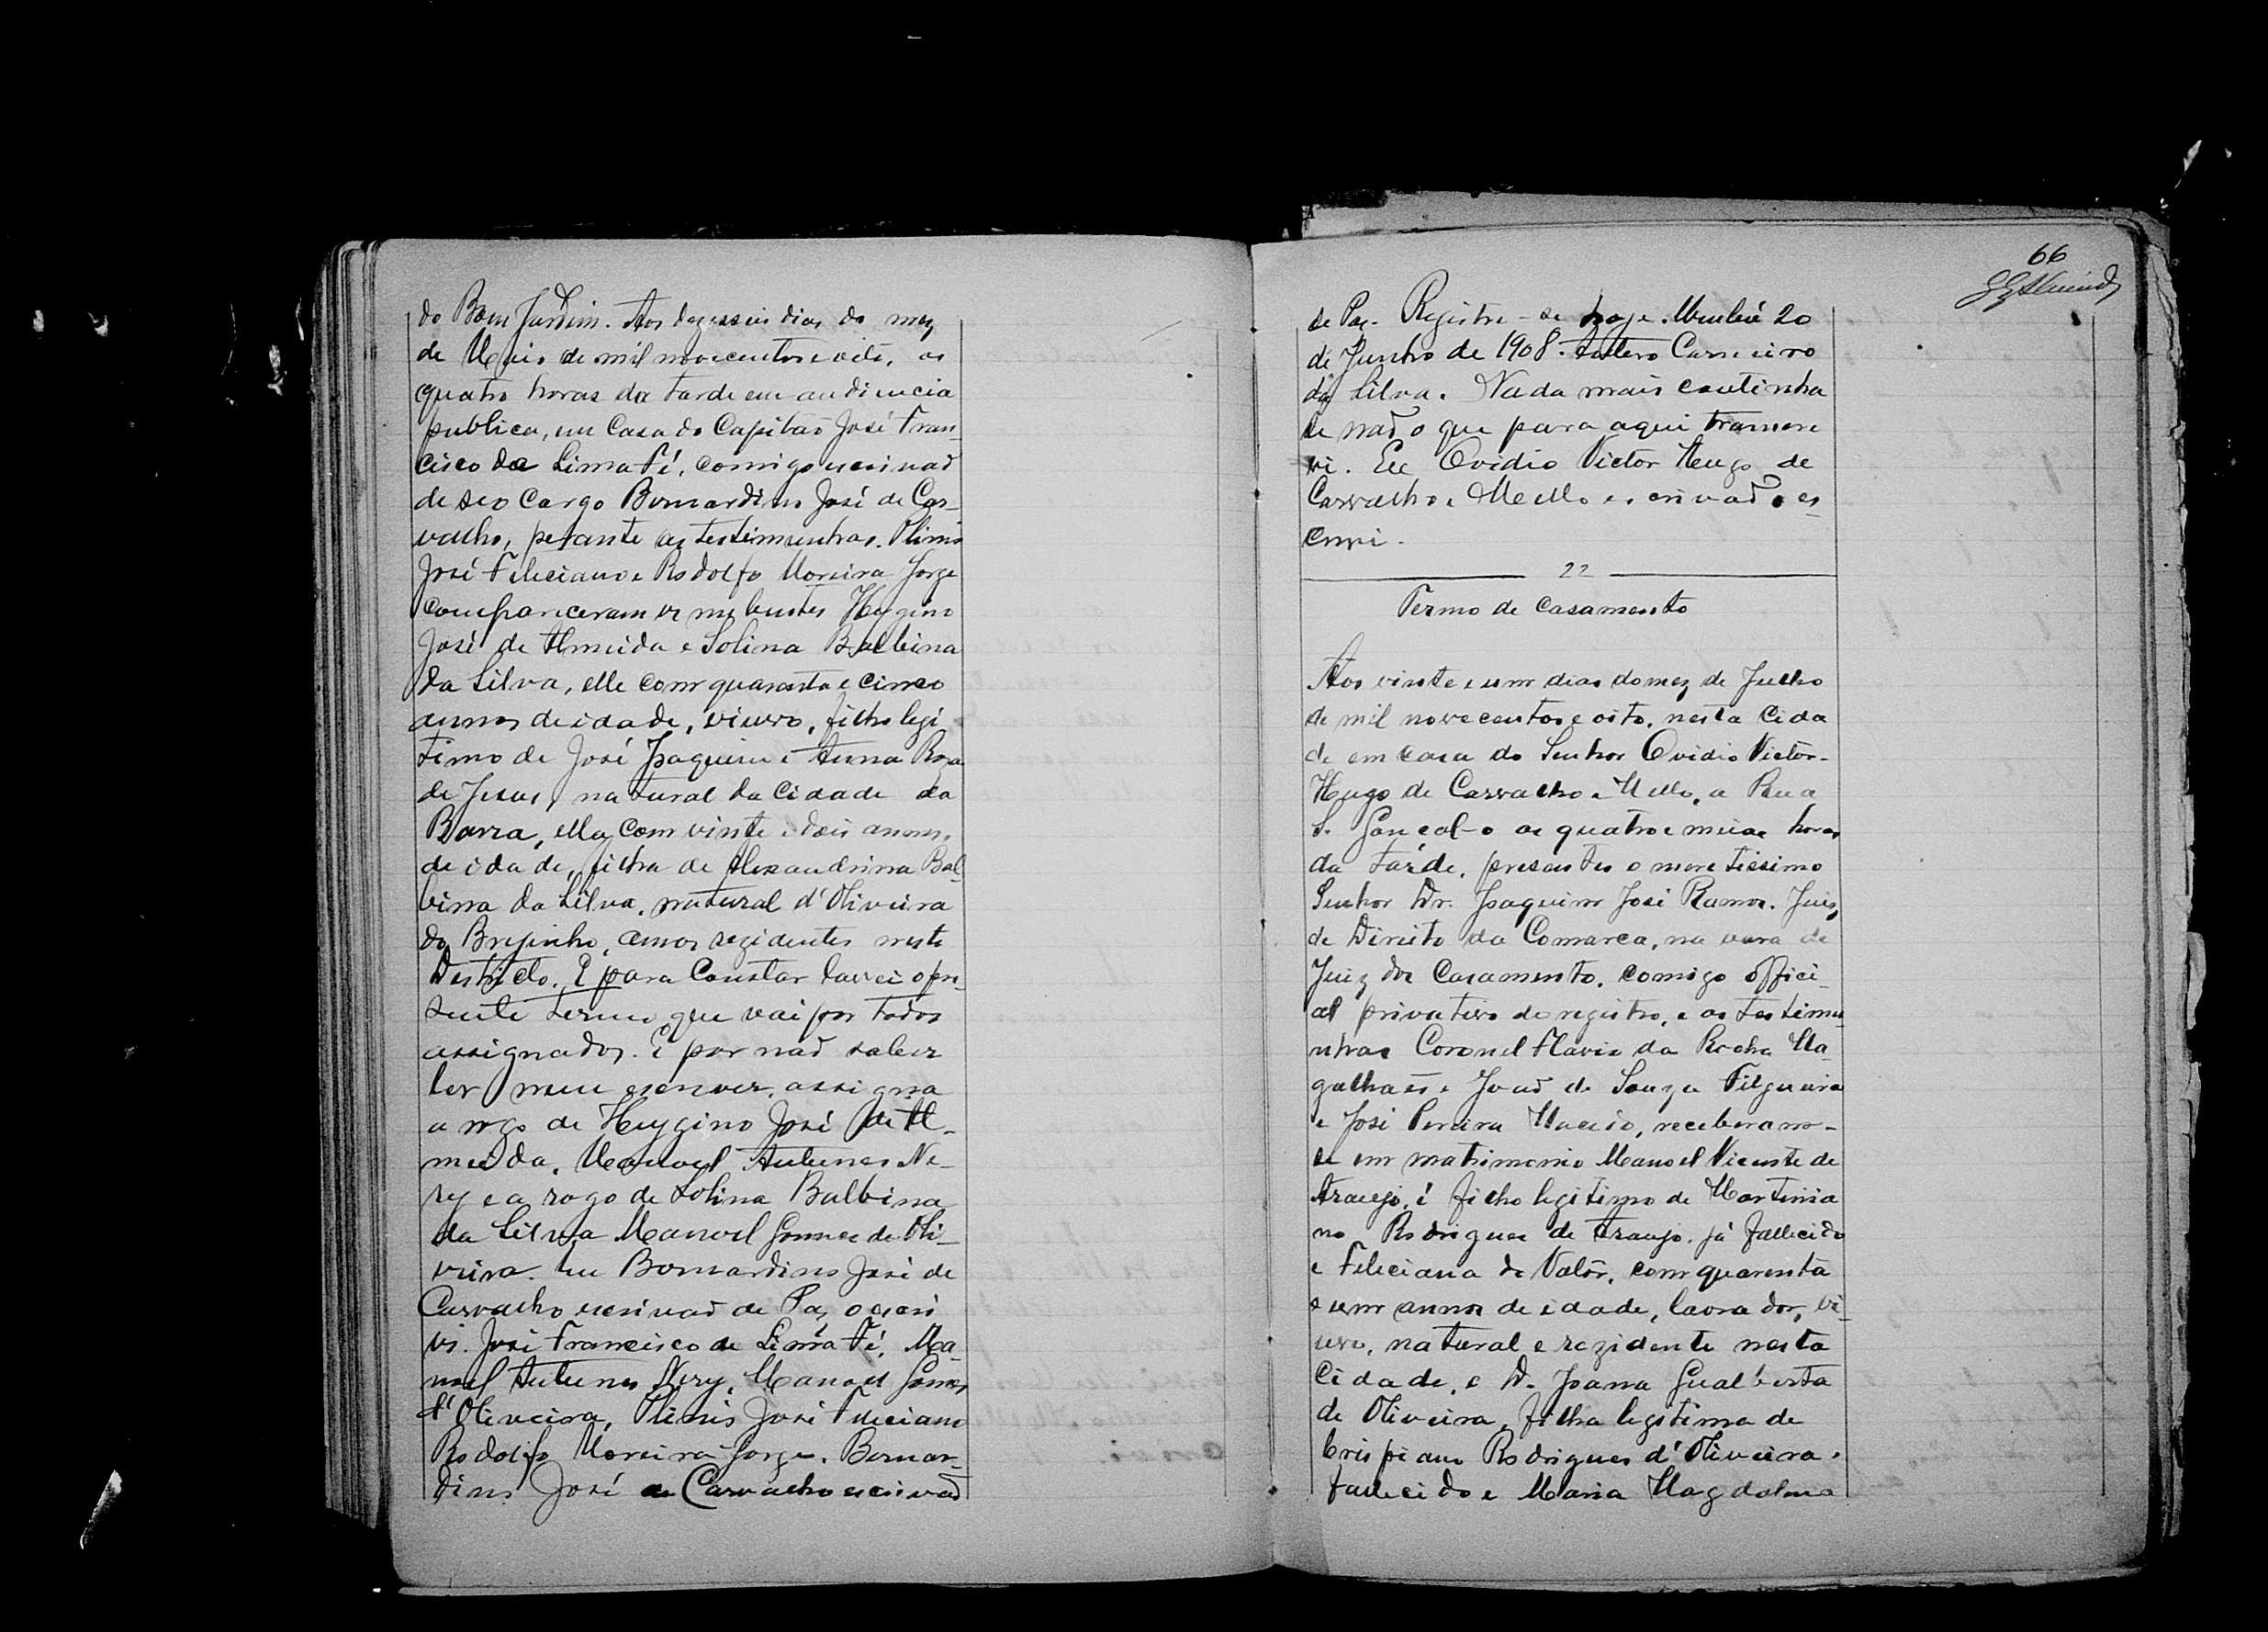 do Bom Jardim. Aos dezesseis dias do mez
de Maio de mil novecentos e oito, as
quatro horas da tarde em audiencia
publica, em Casa do Capitão José Fran-
cisco de Lima Fé, comigo escrivão
de seo Cargo Bernardino José de Car-
valho, perante as testimunhas. Plinio
José Feliciano e Rodolfo Moreira Jorge
compareceram os nubentes Hygino
José de Almeida e Solina Balbina
da Silva, elle com quarenta e cinco
annos de idade, viuvo, filho legi
timo de José Joaquim e Anna Roza
de Jesus, natural da Cidade da
Barra, ella com vinte e dois annos,
de idade, filha de Alexandrina Bal-
bina da Silva, natural d'Oliveira
do Brejinho, amos rezidentes neste
Destricto. E para Constar lavrei o pre-
sente termo que vai por todos
assignados. E por não saber
ler nem escrever, assigna
a rogo de Hygino José de Al-
meida, Manoel Antunes Ne-
ry e a rogo de Solina Balbina
da Silva Manoel Gomes de Oli-
veira. Eu Bernardino José de
Carvalho escrivão de Paz o escri
vi. José Francisco de Lima Fé, Ma-
noel Antunes Nery, Manoel Gomes
d'Oliveira, Plinio José Feliciano
Rodolfo Moreira Jorge. Bernar-
dino José de Carvalho escrivão
66
de Paz. Registre-se hoje. 20
de Junho de 1908. Antero Carneiro
da Silva. Nada mais continha
se não o que para aqui transcre
vi. Eu Ovidio Victor Hugo de
Carvalho e Mello escrivão o es-
crevi.
22
Termo de Casamento
Aos vinte e um dias do mez de Julho
de mil novecentos e oito, nesta Cida
de em casa do Senhor Ovidio Victor-
Hugo de Carvalho e Mello, a Rua
S. Goncal-o as quatro e meias horas
da tarde, presentes o meretissimo
Senhor Dr. Joaquim José Ramos. Juis,
de Direito da Comarca, na vara de
Juiz dos Casamento, comigo offici-
al privativo do registro, e as testimu-
nhas Coronel Flavio da Rocha Ma-
galhaẽs e João de Souza Filgueira
e José Pereira Macido, receberam-
se em matrimonio Manoel Vicente de
Araujo, é filho legitimo de Martinia
no Rodrigues de Araujo, já fallecido
e Feliciana do Valôr, com quarenta
e um annos de idade, lavrador, vi-
uvo, natural e rezidente nesta
Cidade, e D. Joana Gualberta
de Oliveira, filha legitima de
Crispiano Rodrigues d'Oliveira,
fallecido e Maria Magdalena